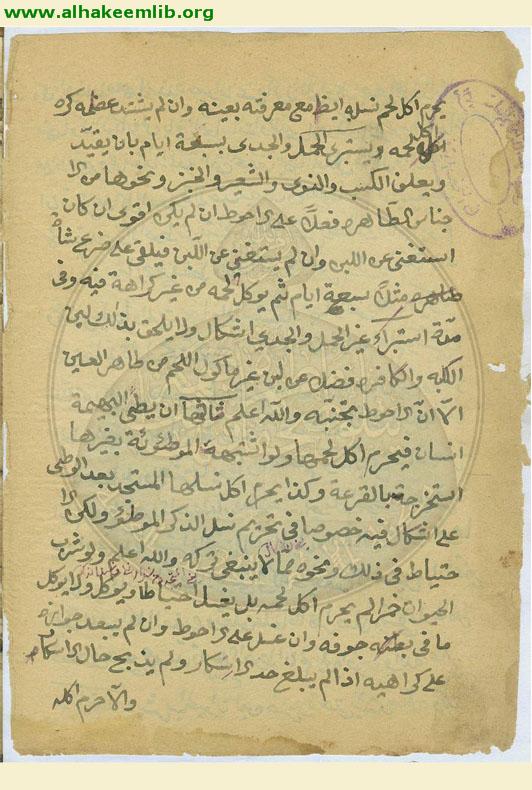 www.alhakeemlib.org
يحرم اكل لحم نسله ايضا مع معرفته بعينه وان لم يشتد عظمه كره
اكل لحمه ويستبرئ الحمل والجدى بسبعة ايام بان يقيّد
ويعلف الكسب والنوى والشعير والخبز ونحوها من الا
جناس الطاهرة فعلا على الاحوط ان لم يكن اقوى ان كان
استغنى عن اللبن وان لم يستغنى عن اللبن فيلقى على ضرع شاة
طاهرة مثلا سبعة ايام ثم يوكل لحمه من غير كراهة فيه وفى
مدّة استبراء غير الحمل والجدي اشكال ولا يلحق بذلك لبن
الكلبة والكافرة فضلا عن لبن غير مأكول اللحم من طاهر العين
الا انّ الاحوط تجنّبه والله اعلم ثالثها ان يطئ البهيمة
انسان فيحرم اكل لحمها ولو اشتبهة الموطوئة بغيرها
استخرجت بالقرعة وكذا يحرم اكل نسلها المستجد بعد الوطى
على اشكال فيه خصوصا فى تحريم نسل الذكر الموطوئ ولكن الا
حتياط فى ذلك ونحوه مما لا ينبغى تركه والله اعلم ولو شرب
الحيوان خمرا لم يحرم اكل لحمه بل يغسل احتياطا ويؤكل ولا يوكل
ما فى بطنه جوفه وان غسل على الاحوط وان لم يبعد جوازه
على كراهيه اذا لم يبلغ حد الاسكار ولم يذبح حال الاسكار
والا حرم اكله